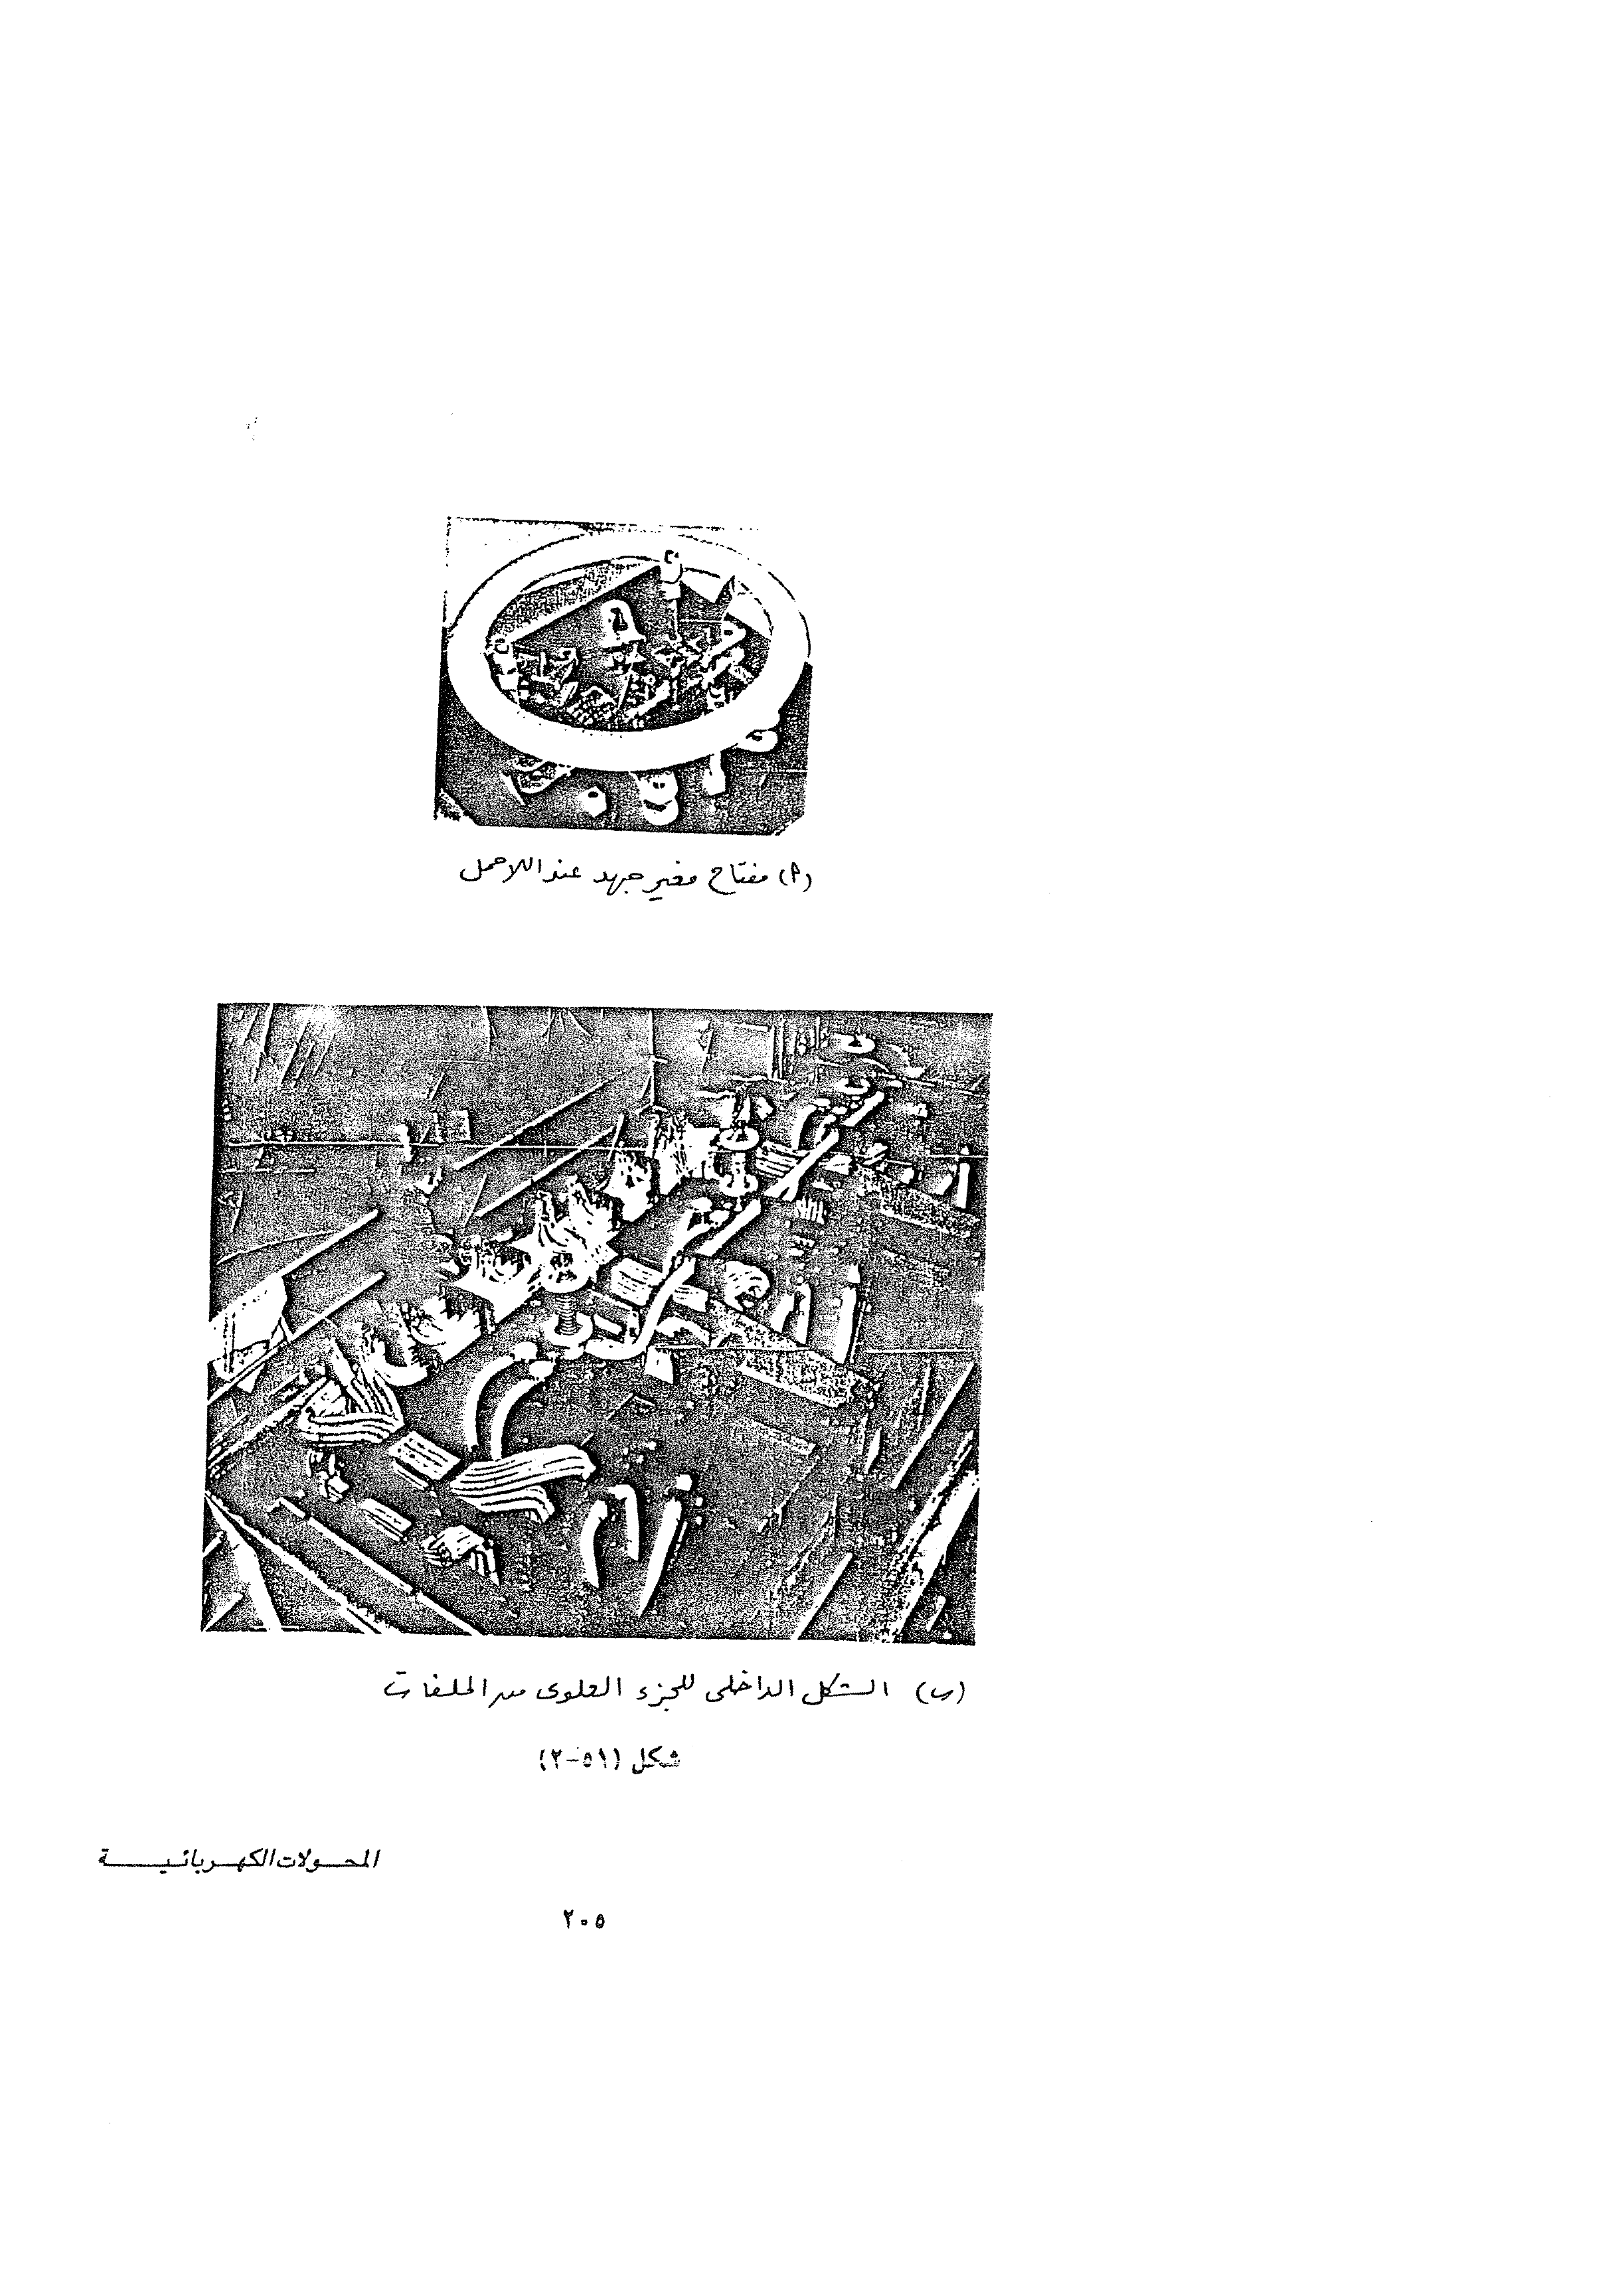 (أ) مفتاح مغير جهد عند اللاحمل
(ب) الشكل الداخلى للجزء العلوى من الملفات
شكل (٥١-٢)
المحولات الكهربائية
٢٠٥